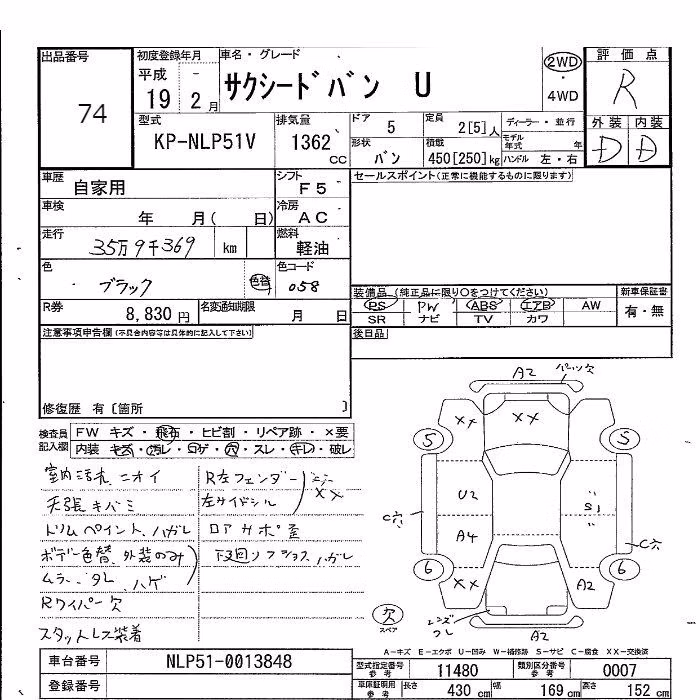 出品番号 初度登録年月 車名・グレード 評価点
74 平成 19 - 2月 サクシードバン U 2WD・4WD R
型式 排気量 ドア 定員 ディーラー・並行 外装 内装
KP-NLP51V 1362cc 5 2[5]人 モデル年式 年 D D
形状 積載 ハンドル 左・右
バン 450[250]kg
車歴 自家用 シフト F5 セールスポイント(正常に機能するものに限ります)
車検 年 月( 日) 冷房 AC
走行 35万9千369 km 燃料 軽油
色 ブラック 色替 色コード 058
装備品(純正品に限り○をつけてください) 新車保証書
PS PW ABS エアB AW 有・無
SR ナビ TV カワ
R券 8,830円 名変通知期限 月 日 後日品
注意事項申告欄(不具合内容等は具体的に記入して下さい)
修復歴 有〔箇所 〕
検査員記入欄 FW キズ・飛石・ヒビ割・リペア跡・×要
内装 キズ・汚レ・コゲ・穴・スレ・キレ・破レ
室内汚れ ニオイ R左フェンダー
天張キバミ 左サイドシル XX
ドリムペイント、ハガレ ロアサポ歪
ボデー色替 外装のみ
ムラ、タレ、ハゲ
Rワイパー欠
スタットレス装着
A2
XX XX
5 5
U2 S1
A4
C穴 C穴
6 6
XX A2
欠
スペア
A2
A-キズ E-エクボ U-凹み W-補修跡 S-サビ C-腐食 XX-交換済
車台番号 NLP51-0013848 型式指定番号 参考 11480 類別区分番号 参考 0007
登録番号 車庫証明用 参考 長さ 430cm 幅 169cm 高さ 152cm